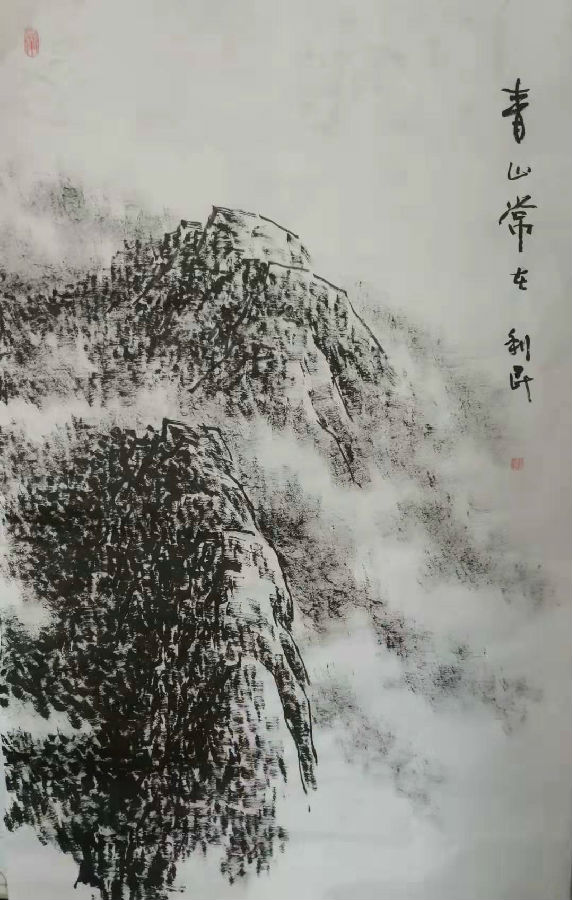 青山常在 利民